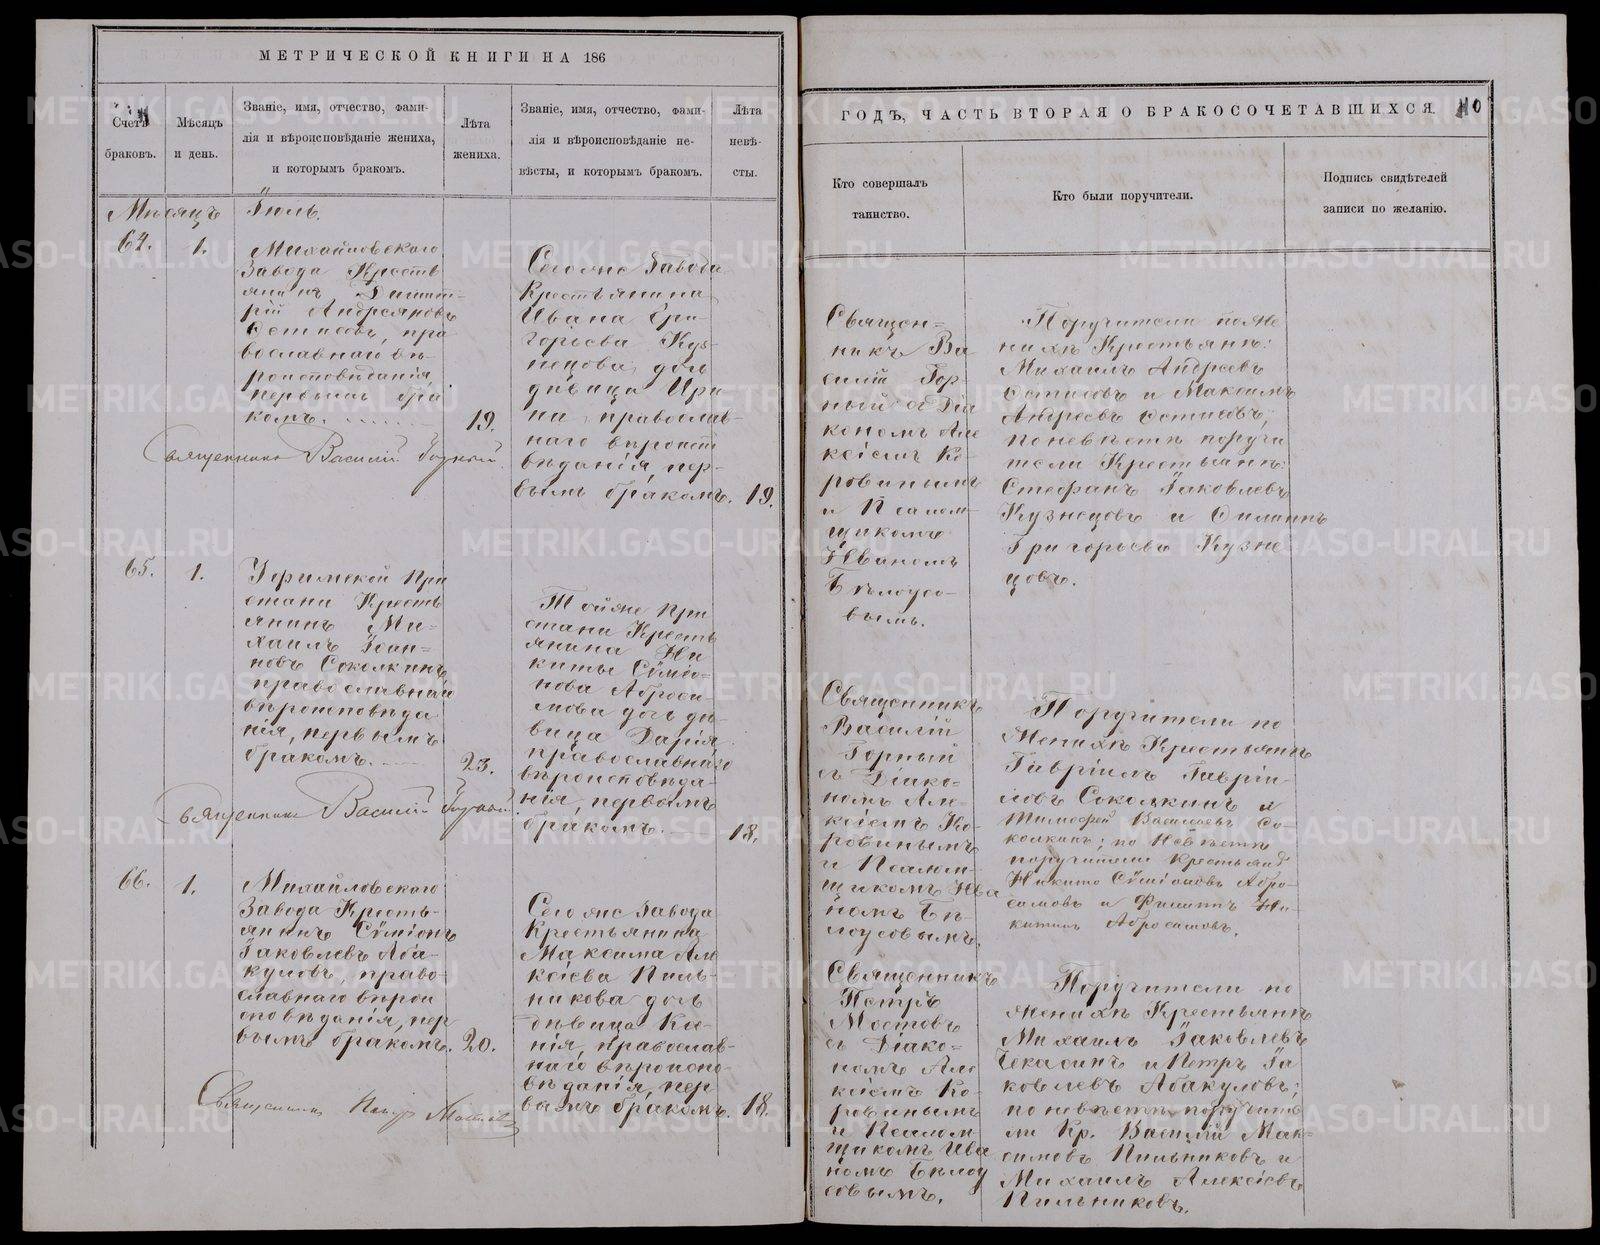 МЕТРИЧЕСКОЙ КНИГИ НА 186
Счетъ
браковъ.
Мѣсяцъ
и день.
Званіе, имя, отчество, фами-
лія и вѣроисповѣданіе жениха,
и которымъ бракомъ.
Лѣта
жениха.
Званіе, имя, отчество, фами-
лія и вѣроисповѣданіе не-
вѣсты, и которымъ бракомъ.
Лѣта
невѣ-
сты.
Мѣсяцъ Іюль.
64.
1.
Михайловскаго
Завода Кресть
янинъ Димит-
рій Андреяновъ
Остисовъ, пра
вославнаго вѣ-
роисповѣданія
первымъ бра
комъ.
19.
Сего яне Завода
Крестьянина
Ивана Гри-
горьева Куз-
нецова дочь
дѣвица Ири
на, православ-
наго вѣроисп
вѣданія, пер-
вымъ бракомъ.
19.
Священникъ Василій Горный
65.
1.
Уфимской При
стани Кресть
янинъ Ми-
хаилъ Іоан-
новъ Соколкинъ
православнаго
вѣроисповѣда
нія, первымъ
бракомъ.
23.
Тойяне При
стани Кресть
янина Ни
киты Сѵмео-
нова Аброси
мова дочь дѣ-
вица Дарія
православнаго
вѣроисповѣда-
нія, первымъ
бракомъ.
18.
Священникъ Василій Горный
66.
1.
Михайловскаго
Завода Кресть-
янинъ Сѵміонъ
Іаковлевъ Аба-
куловъ, право-
славнаго вѣрои
сповѣданія, пер
вымъ бракомъ.
20.
Сего яне Завода
Крестьянина
Максима Але
ксіева Пиль-
никова дочь
дѣвица Ксе-
нія, православ-
наго вѣроиспо-
вѣданія, пер
вымъ бракомъ.
18.
Священникъ Петръ Мостовъ
ГОДЪ, ЧАСТЬ ВТОРАЯ О БРАКОСОЧЕТАВШИХСЯ.
Кто совершалъ
таинство.
Кто были поручители.
Подпись свидѣтелей
записи по желанію.
Священ-
никъ Ва
силій Гор-
ный съ Діа
кономъ Але
ксіемъ Ко-
ровинымъ
и Псалом-
щикомъ
Иваномъ
Бѣлоусо-
вымъ.
Поручители по же
нихѣ Крестьяне:
Михаилъ Андреевъ
Остисовъ и Максимъ
Андреевъ Остисовъ;
по невѣстѣ поручи
тели Крестьяне:
Стефанъ Іаковлевъ
Кузнецовъ и Филиппъ
Григорьевъ Кузне
цовъ.
Священникъ
Василій
Горный
съ Діако-
номъ Але-
ксіемъ Ко-
ровинымъ
и Псалом-
щикомъ Ива
номъ Бѣ-
лоусовымъ.
Поручители по
женихѣ Крестьяне
Гавріилъ Гаврии-
ловъ Соколкинъ и
Тимофей Васильевъ Со-
колкинъ; по невѣстѣ
поручители Крестьяне
Никита Сѵміоновъ Абро-
симовъ и Филиппъ Ни-
китинъ Абросимовъ.
Священникъ
Петръ
Мостовъ
съ Діако-
номъ Але
ксіемъ Ко-
ровинымъ
и Псалом-
щикомъ Ива
номъ Бѣлоу
совымъ.
Поручители по
женихѣ Крестьяне
Михаилъ Іаковлевъ
Чекасинъ и Петръ Іа
ковлевъ Абакуловъ;
по невѣстѣ поручите
ли Кр. Василій Мак-
симовъ Пильниковъ и
Михаилъ Алексіевъ
Пильниковъ.
METRIKI.GASO-URAL.RU